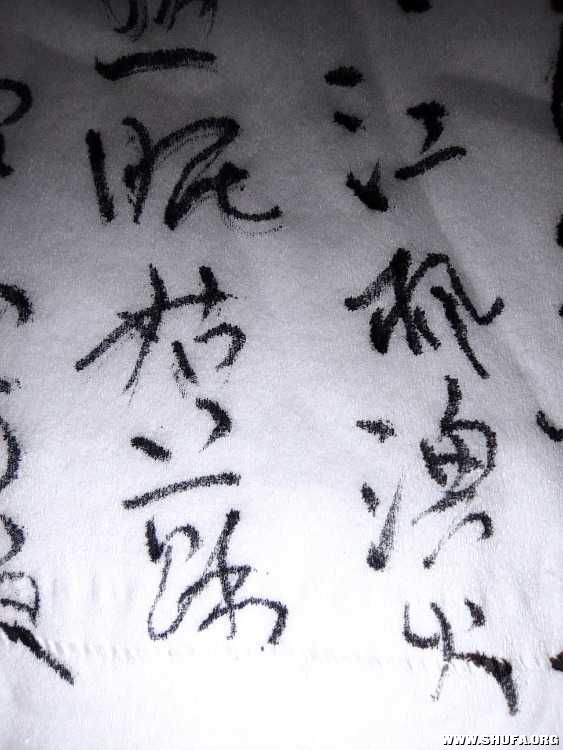 江楓漁火
眠姑蘇
WWW.SHUFA.ORG